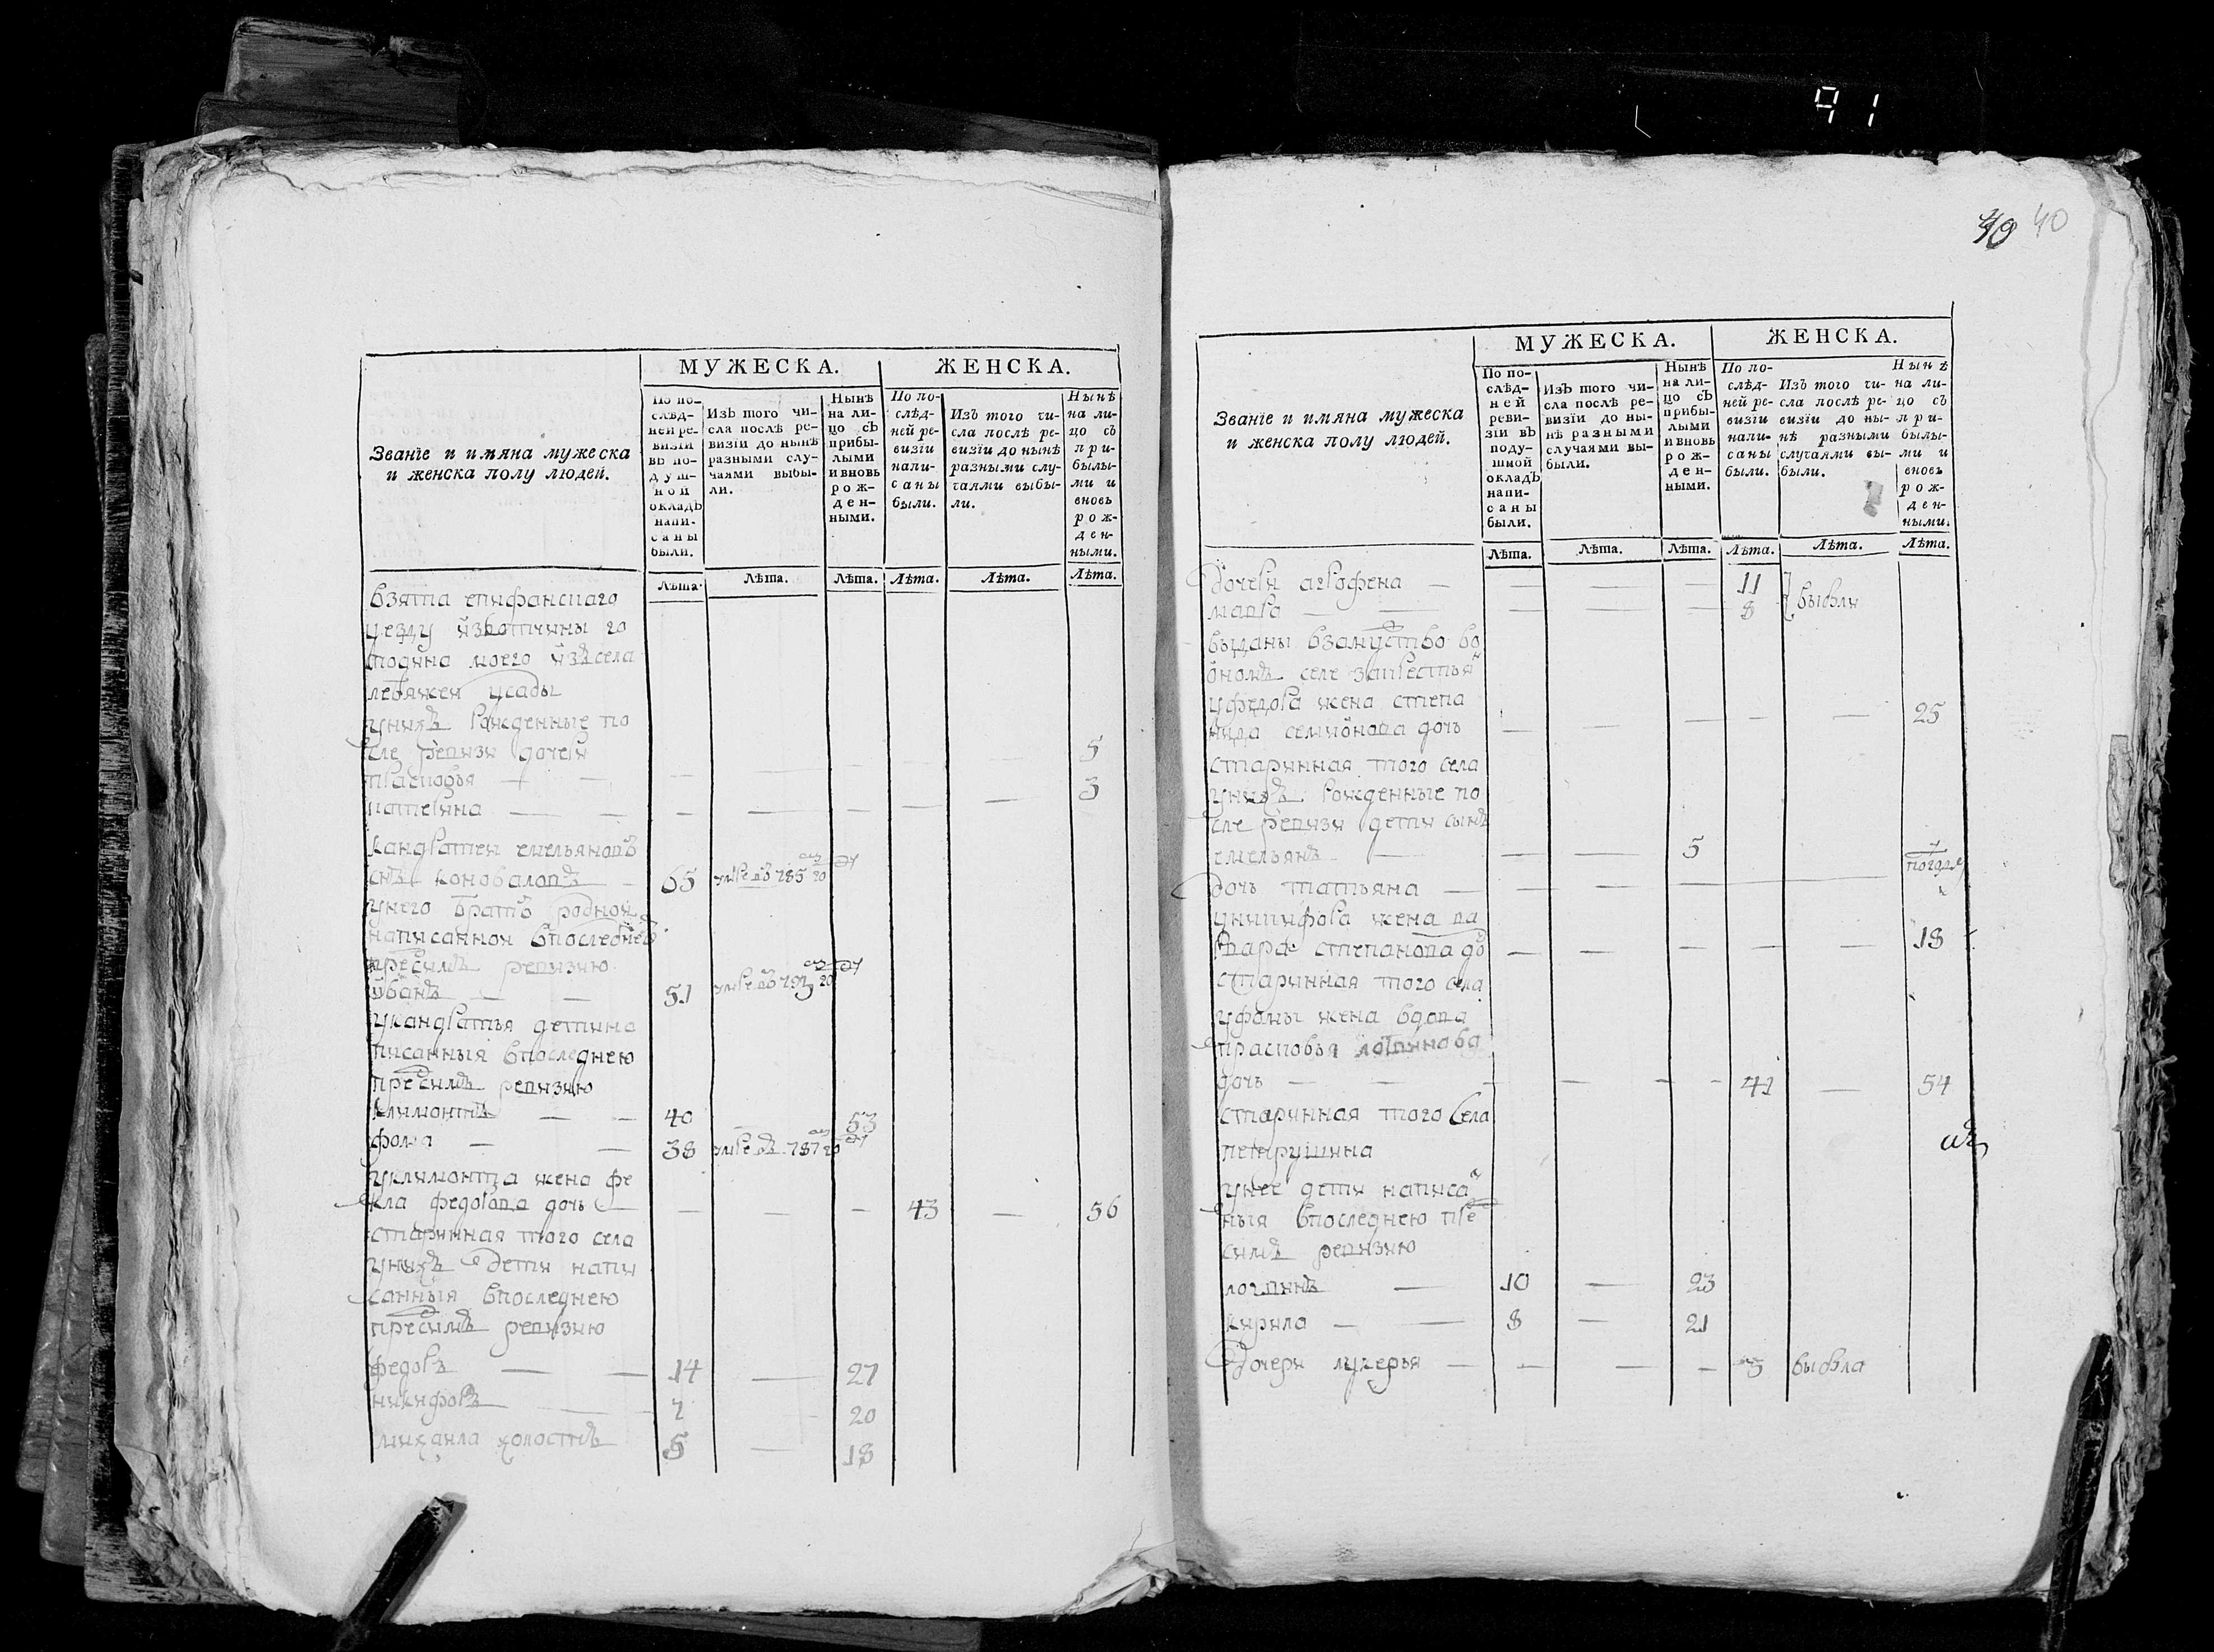 91
40 40
МУЖЕСКА. ЖЕНСКА.
Званїе и имяна мужеска и женска полу людей.
По по-слѣд-ней ре-визіи въ по-душ-ной окладъ напи-саны были.
Изъ того чи-сла послѣ ре-визїи до нынѣ разными слу-чаями выбы-ли.
Нынѣ на ли-цо съ прибы-лыми и вновь рож-ден-ными.
По по-слѣд-ней ре-визїи напи-саны были.
Изъ того чи-сла послѣ ре-визїи до нынѣ разными слу-чаями выбы-ли.
Нынѣ на ли-цо съ при-былы-ми и вновь рож-ден-ными.
Лѣта. Лѣта. Лѣта. Лѣта. Лѣта. Лѣта.
взята епифанскаго
уезду извотчины го
модина моего изъ села
усады
унихъ рожденные по
сле ревизи дочери
прасковья — — — — — — — 5
катерина — — — — — — — 3
кандратеи емельяновъ
снъ коновалов — 65 785 20
унего братъ роднои
написаннои впоследнею
ревизию
иванъ — — 51 20
укандратья дети на
писанныя впоследнею
ревизию
климонтъ — — 40 — 53
фома — — 38 787 20
уклимонта жена фе
кла федорова дочь — — — — 43 — 56
старинная того села
унихъ дети напи
санныя впоследнею
ревизию
федоръ — — 14 — 27
никифоръ — — 7 — 20
михаила холостъ 5 — 18
МУЖЕСКА. ЖЕНСКА.
Званїе и имяна мужеска и женска полу людей.
По по-слѣд-ней реви-зіи въ поду-шной окладъ напи-саны были.
Изъ того чи-сла послѣ ре-визїи до ны-нѣ разными случаями вы-были.
Нынѣ на ли-цо съ прибы-лыми и вновь рож-ден-ными.
По по-слѣд-ней ре-визїи напи-саны были.
Изъ того чи-сла послѣ ре-визїи до ны-нѣ разными случаями вы-были.
Нынѣ на ли-цо съ при-былы-ми и вновь рож-ден-ными.
Лѣта. Лѣта. Лѣта. Лѣта. Лѣта. Лѣта.
дочери агрофена — — — 11
марфа — — — — 8 выбыли
выданы взамуство во
ономъ селе
уфедора жена степа
нида семионова дочь — — — — — 25
старинная того села
унихъ рожденные по
сле ревизи дети сынъ
емельянъ — — — 5
дочь татьяна — — — — —
уникифора жена ва
рвара степанова до — — — — — 18
старинная того села
уфомы жена вдова
прасковья логвинова
дочь — — — — — — 41 — 54
старинная того села
петрушина
унее дети написа
ныя впоследнею пре
ревизию
логвинъ — 10 — 23
кирила — — 8 — 21
дочери лукерья — — — — 3 выбыла